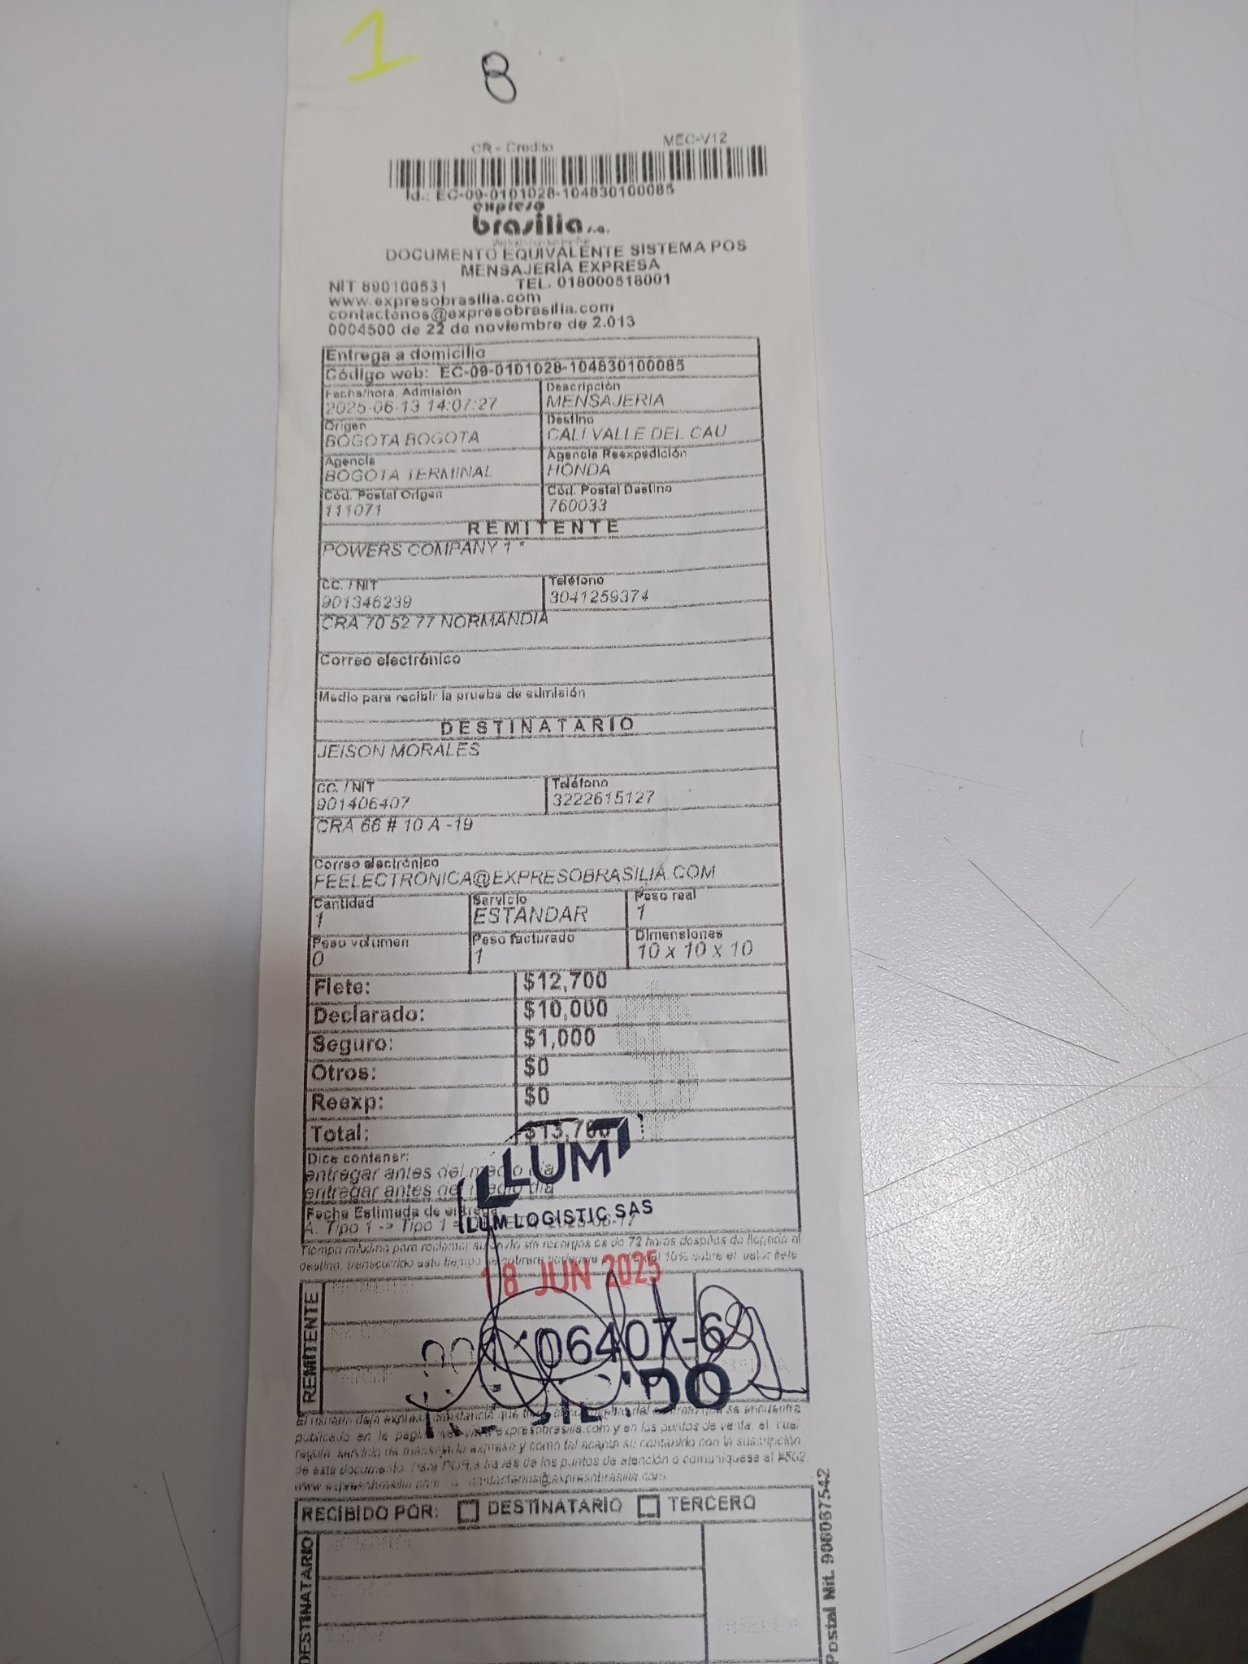 1
8
CR - Credito MEC-V12
Id.: EC-09-0101028-104830100085
expreso
brasilia s.a.
DOCUMENTO EQUIVALENTE SISTEMA POS
MENSAJERÍA EXPRESA
NIT 890100531 TEL. 018000518001
www.expresobrasilia.com
contactenos@expresobrasilia.com
0004500 de 22 de noviembre de 2.013
Entrega a domicilio
Código web: EC-09-0101028-104830100085
Fecha/hora Admisión Descripción
2025-06-13 14:07:27 MENSAJERIA
Origen Destino
BOGOTA BOGOTA CALI VALLE DEL CAU
Agencia Agencia Reexpedición
BOGOTA TERMINAL HONDA
Cód. Postal Origen Cód. Postal Destino
111071 760033
REMITENTE
POWERS COMPANY 1 *
CC. / NIT Teléfono
901346239 3041259374
CRA 70 52 77 NORMANDIA
Correo electrónico
Medio para recibir la prueba de admisión
DESTINATARIO
JEISON MORALES
CC. / NIT Teléfono
901406407 3222615127
CRA 66 # 10 A -19
Correo electrónico
FEELECTRONICA@EXPRESOBRASILIA.COM
Cantidad Servicio Peso real
1 ESTANDAR 1
Peso volumen Peso facturado Dimensiones
0 1 10 x 10 x 10
Flete: $12,700
Declarado: $10,000
Seguro: $1,000
Otros: $0
Reexp: $0
Total: $13,700
Dice contener:
entregar antes del medio dia
entregar antes del medio dia
LLUM
Fecha Estimada de entrega
A. Tipo 1 -> Tipo 1
LLUM LOGISTIC SAS
Tiempo máximo para reclamar su envío sin recargos es de 72 horas después de llegado al
destino, transcurrido este tiempo se cobrará 10% sobre el valor flete
18 JUN 2025
REMITENTE
06407-6
El usuario deja expresa constancia que del contrato que se encuentra
publicado en la página www.expresobrasilia.com y en los puntos de venta, el cual
regula servicio de mensajería expresa y como tal acepta su contenido con la suscripción
de este documento. Para PQR a través de los puntos de atención o comuníquese al #502.
www.expresobrasilia.com contactenos@expresobrasilia.com
RECIBIDO POR: DESTINATARIO TERCERO
DESTINATARIO
Postal Nit. 900067542